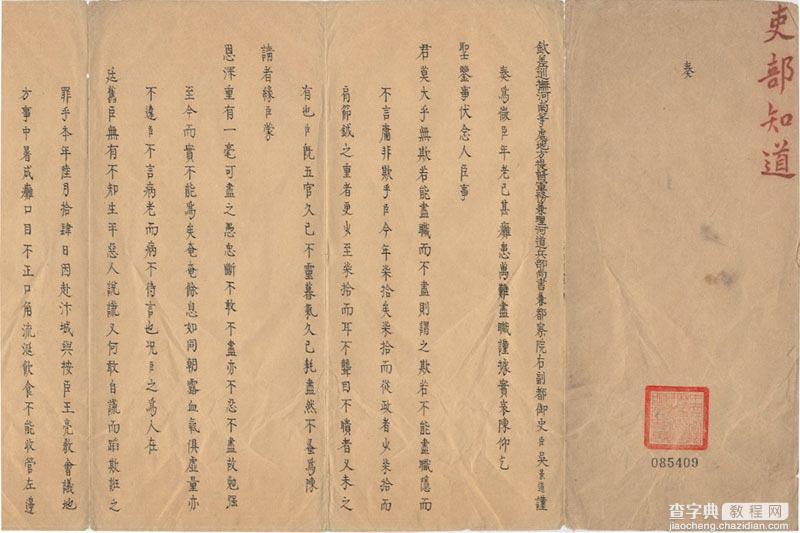 吏部知道
奏
085409
欽差巡撫河南等處地方提督軍務兼理河道兵部尚書兼都察院右副都御史臣吳景道謹
奏爲微臣年老已甚癱患萬難盡職謹據實哀陳仰乞
聖鑒事伏念人臣事
君莫大乎無欺若能盡職而不盡則謂之欺若不能盡職隱而
不言庸非欺乎臣今年柒拾矣柒拾而從政者少柒拾而
肩節鉞之重者更少至柒拾而耳不聾目不瞶者又未之
有也臣旣五官久已不靈暮氣久已耗盡然不亟爲陳
請者緣臣蒙
恩深重有一毫可盡之愚忠斷不敢不盡亦不忍不盡故勉强
至今而實不能爲矣奄奄餘息如同朝露血氣俱虛量亦
不遠臣不言病老而病不待言也況臣之爲人在
廷舊臣無有不知生平惡人說謊又何敢自謊而蹈欺誑之
罪乎本年陸月拾肆日因赴汴城與按臣王亮教會議地
方事中暑成癱口目不正口角流涎飲食不能收管左邊
查字典 教程网
jiaocheng.chazidian.com